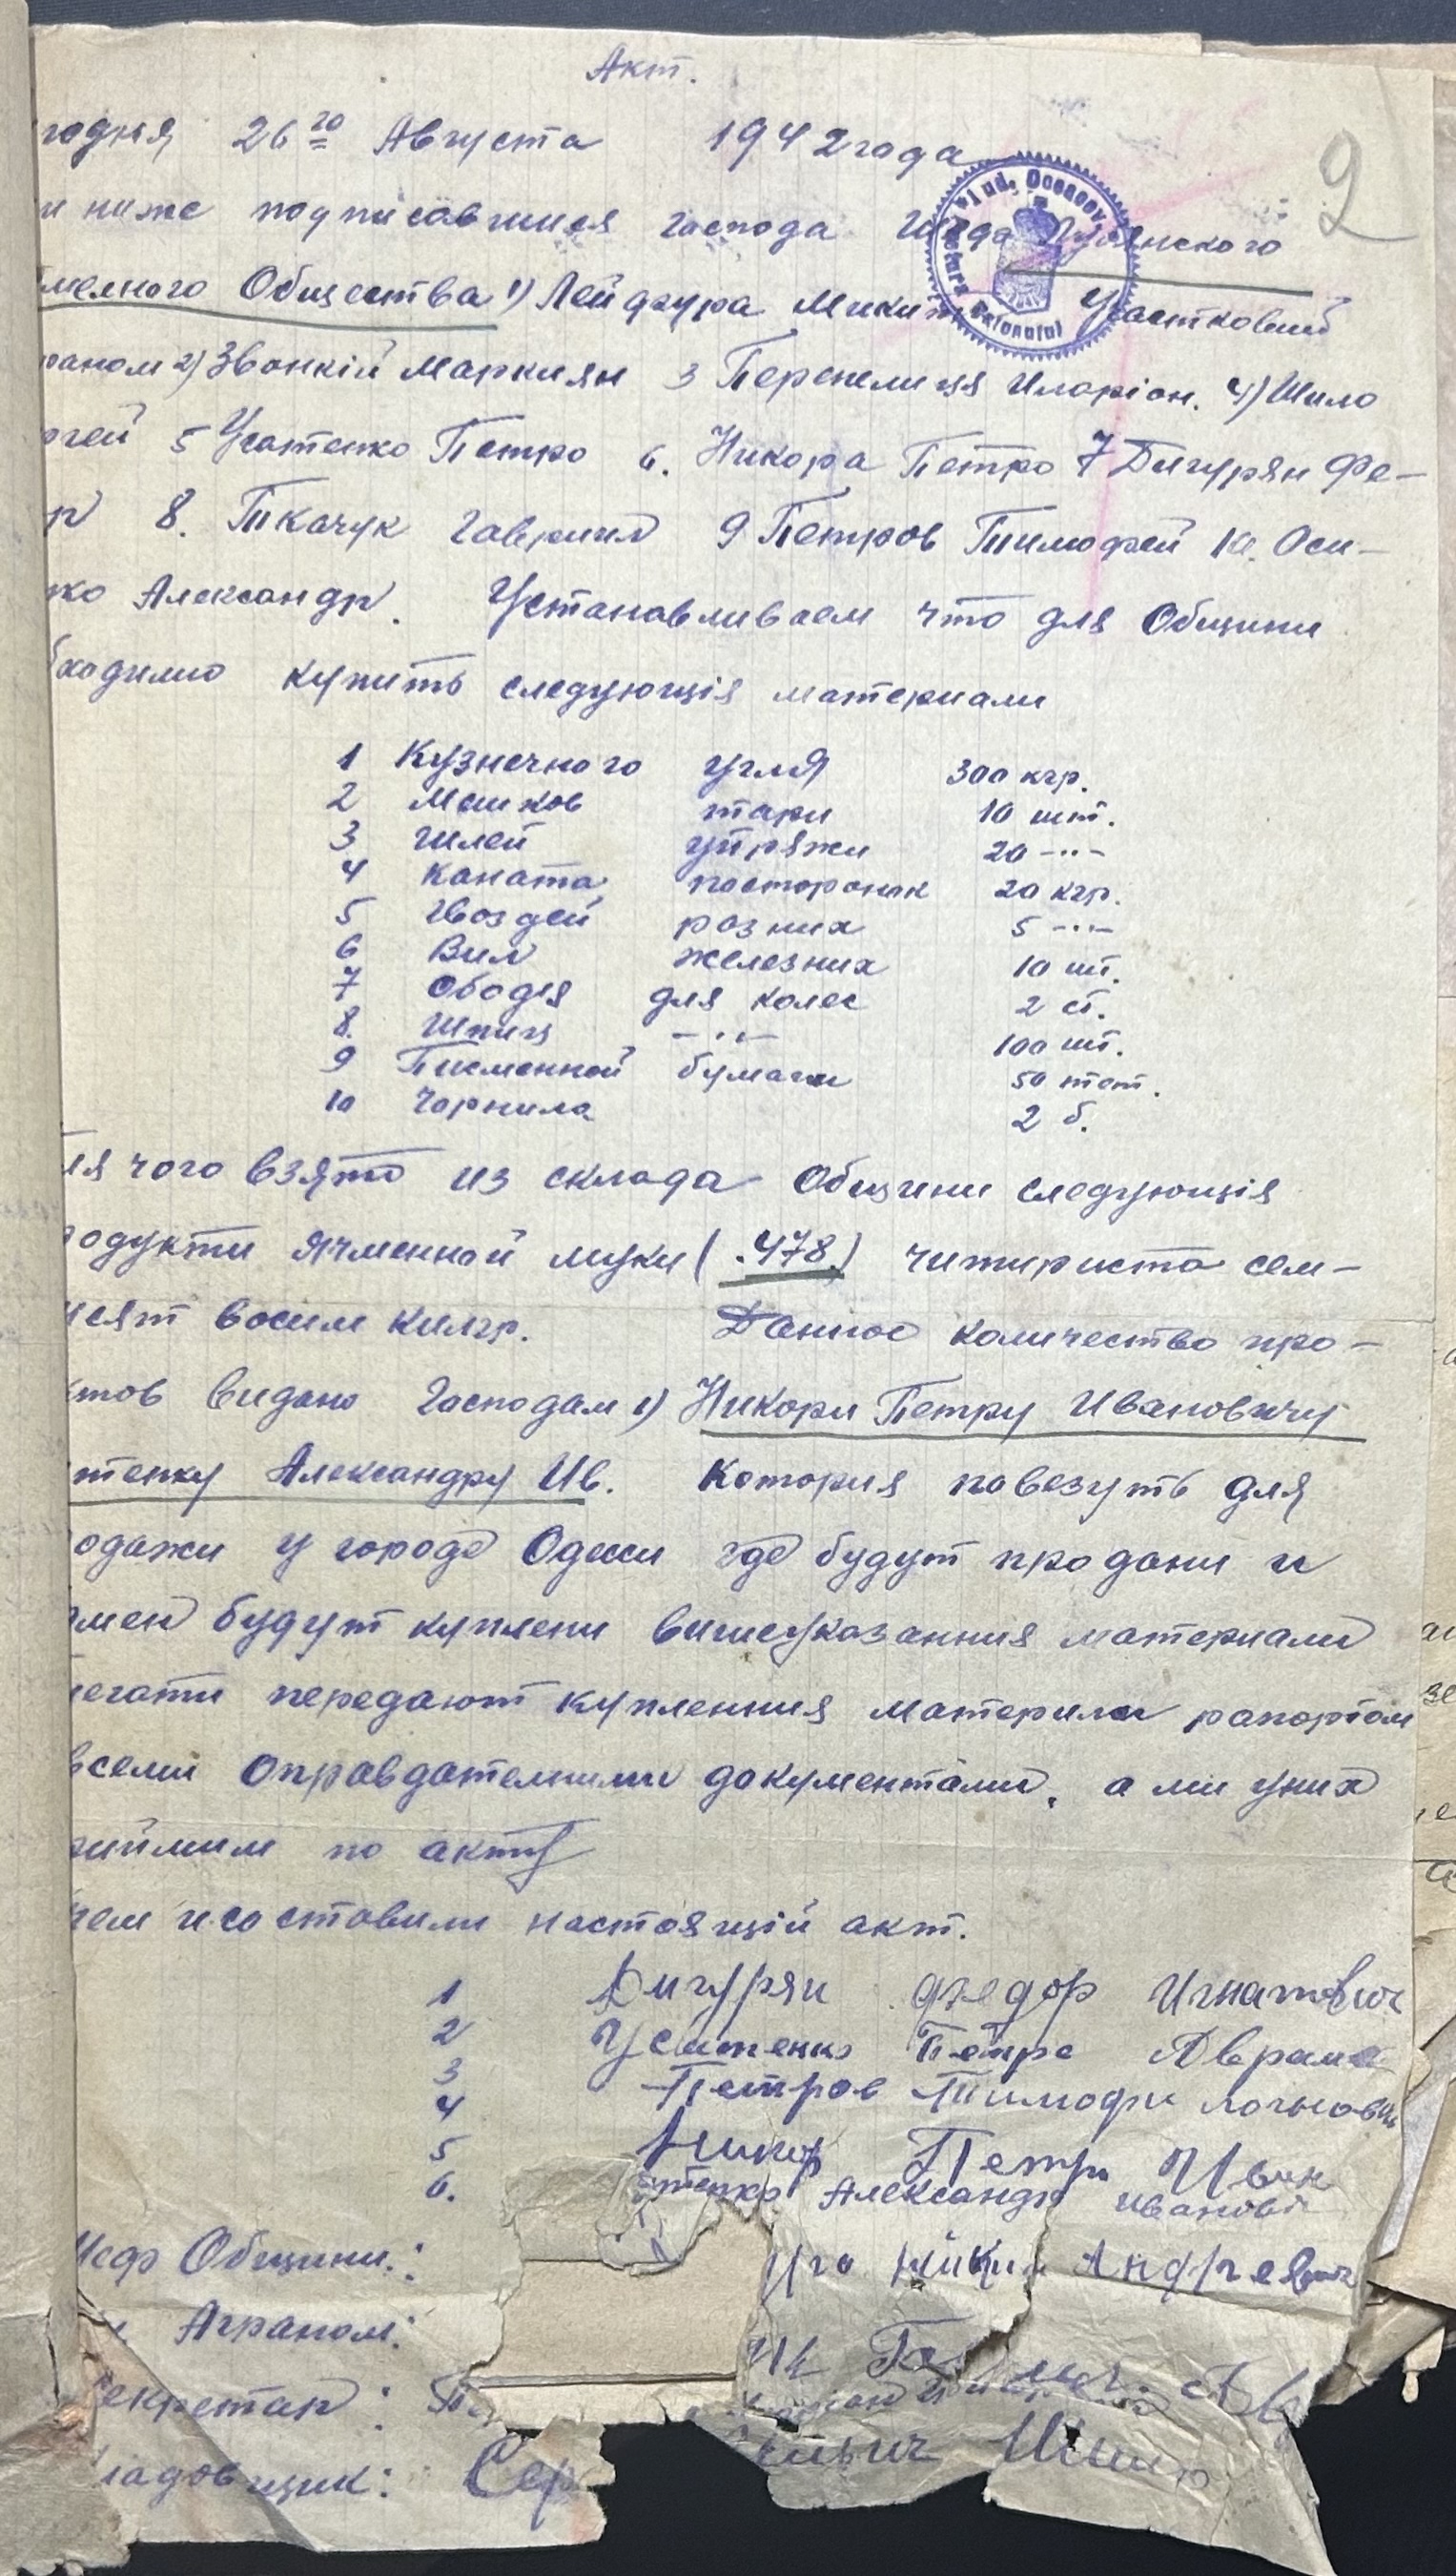 Акт.
годня 26го Августа 1942 года
и ниже подписавшиеся господа
2
мелного Общества 1) Лейдгура Участковий
раном 2) Звонкій Маркиян 3 Перепелиця Иларіон. 4) Шило
ргей 5 Усатенко Петро 6. Никора Петро 7 Дигурян Фе-
р 8. Ткачук Гавриил 9 Петров Тимофей 10. Оси-
ко Александр. Устанавливаем что для Общини
бходимо купить следующія материали
1 Кузнечного угля 300 кгр.
2 Мешков тари 10 шт.
3 Шлей упряжи 20 -"-
4 Каната посторонок 20 кгр.
5 Гвоздей разних 5 -"-
6 Вил железних 10 шт.
7 Ободя для колес 2 ст.
8. Шпиц -"- 100 шт.
9 Писменной бумаги 50 тет.
10 Чорнила 2 б.
ля чого взято из склада Общини следующія
родукти ячменной муки (.478) читириста сем-
десят восим килгр. Данное количество про-
ктов видано Господам 1) Никори Петру Ивановичу
тенку Александру Ив. Которія повезуть для
одажи у городе Одеси где будут продани и
мен будут куплени вишеуказанния материали
легати передают купленния материли рапортом
всеми оправдателними документами, а ми у них
риймим по акту
чем и составили настоящій акт.
1 Дигурян Фгедор Игнатович
2 Усатенко Петро Аврама
3 Петров Тимофи
4 Никор Петр Иван
5
6. тенко Александр Иванови
Шеф Общини: Андреевич
Аграном:
екретар:
ладовщик: Сер